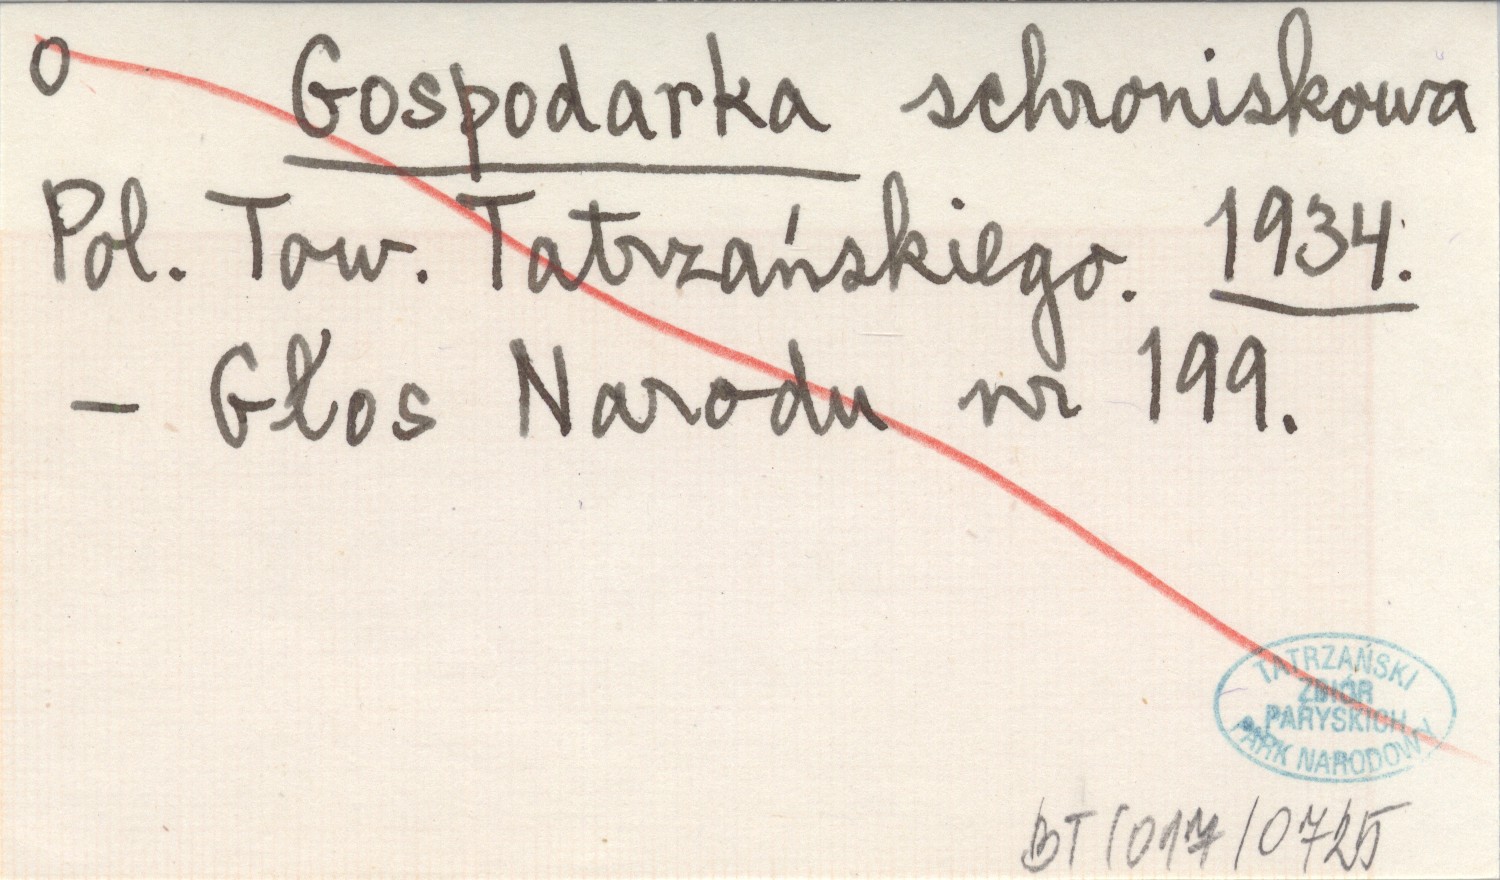 o Gospodarka schroniskowa
Pol. Tow. Tatrzańskiego. 1934.
– Głos Narodu nr 199.
TATRZAŃSKI
ZBIÓR
PARYSKICH
PARK NARODOWY
BT/017/0725